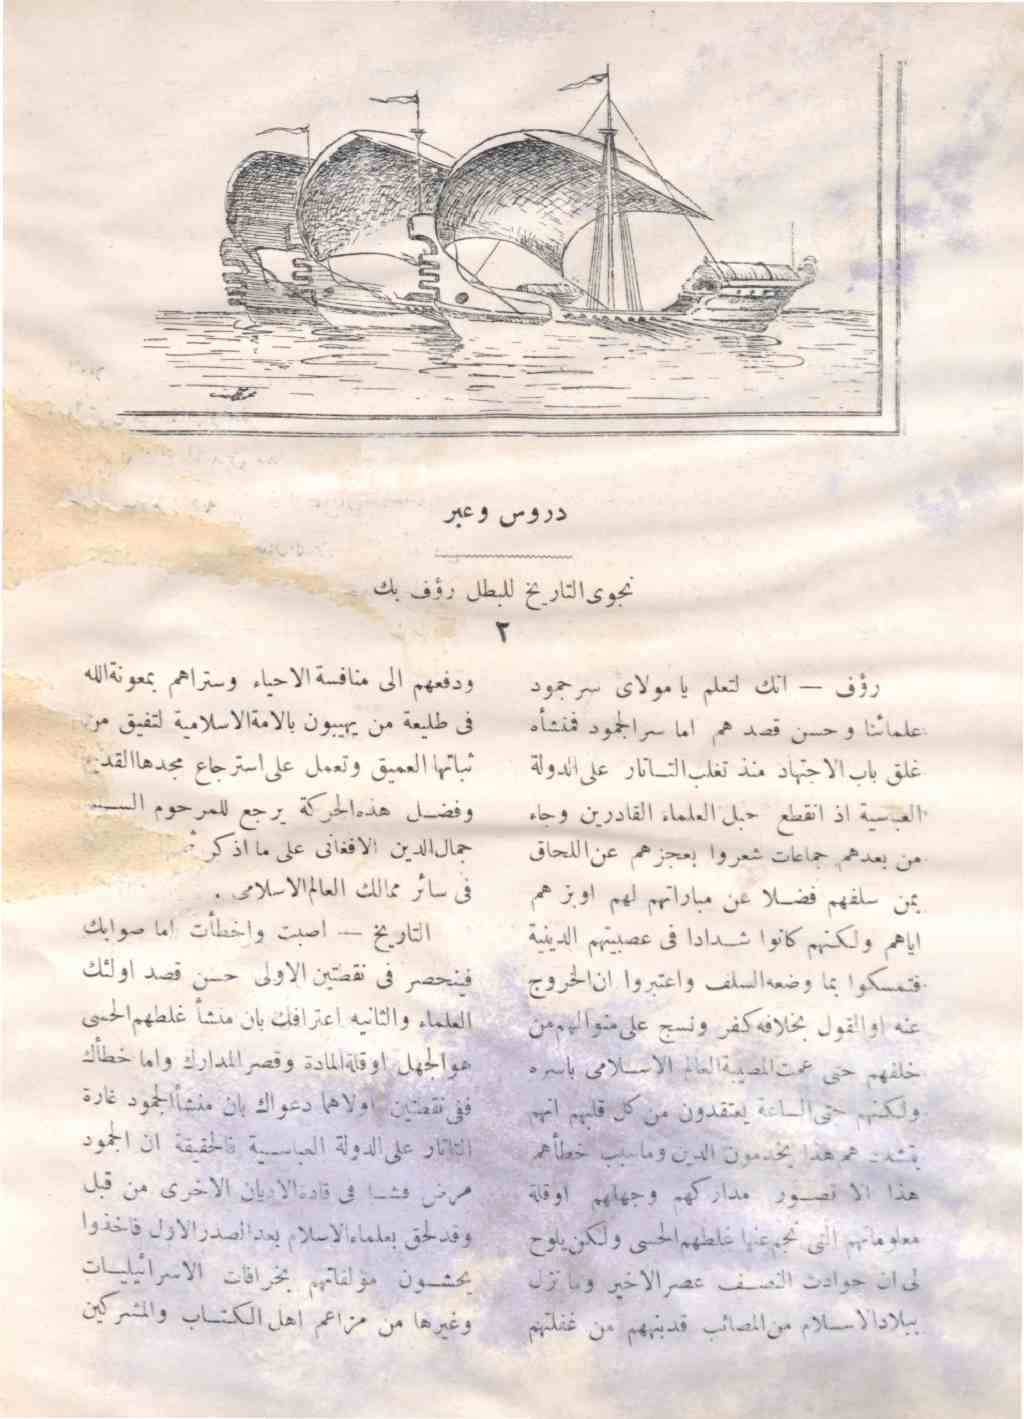 دروس وعبر
نجوى التاريخ للبطل رؤف بك
٢
رؤف — انك لتعلم يا مولاى سر جمود
علمائنا وحسن قصدهم اما سر الجمود فمنشأه
غلق باب الاجتهاد منذ تغلب التاتار على الدولة
العباسية اذ انقطع حبل العلماء القادرين وجاء
من بعدهم جماعات شعروا بعجزهم عن اللحاق
بمن سلفهم فضلا عن مباراتهم لهم او بزهم
اياهم ولكنهم كانوا شدادا فى عصبيتهم الدينية
فتمسكوا بما وضعه السلف واعتبروا ان الخروج
عنه او القول بخلافه كفر ونسج على منوالهم من
خلفهم حتى عمت المصيبة العالم الاسلامى باسره
ولكنهم حتى الساعة يعتقدون من كل قلبهم انهم
هم هذا يخدمون الدين وما سبب خطأهم
هذا الا قصور مداركهم وجهلهم او قلة
معلوماتهم التى نجم عنها غلطهم الحسى ولكن يلوح
لى ان حوادث النصف عصر الاخير وما نزل
ببلاد الاسلام من المصائب قد نبههم من غفلتهم
ودفعهم الى منافسة الاحياء وستراهم بمعونة الله
فى طليعة من يهيبون بالامة الاسلامية لتفيق من
ثباتها العميق وتعمل على استرجاع مجدها القديم
وفضل هذه الحركة يرجع للمرحوم السيد
جمال الدين الافغانى على ما اذكر
فى سائر ممالك العالم الاسلامى .
التاريخ — اصبت واخطأت اما صوابك
فينحصر فى نقطتين الاولى حسن قصد اولئك
العلماء والثانيه اعترافك بان منشأ غلطهم الحسى
هو الجهل او قلة المادة وقصر المدارك واما خطأك
ففى نقطتين اولاهما دعواك بان منشأ الجمود غارة
التاتار على الدولة العباسية فالحقيقة ان الجمود
مرض فشا فى قادة الاديان الاخرى من قبل
وقد لحق بعلماء الاسلام بعد الصدر الاول فاخذوا
يحشون مؤلفاتهم بخرافات الاسرائيليات
وغيرها من مزاعم اهل الكتاب والمشركين